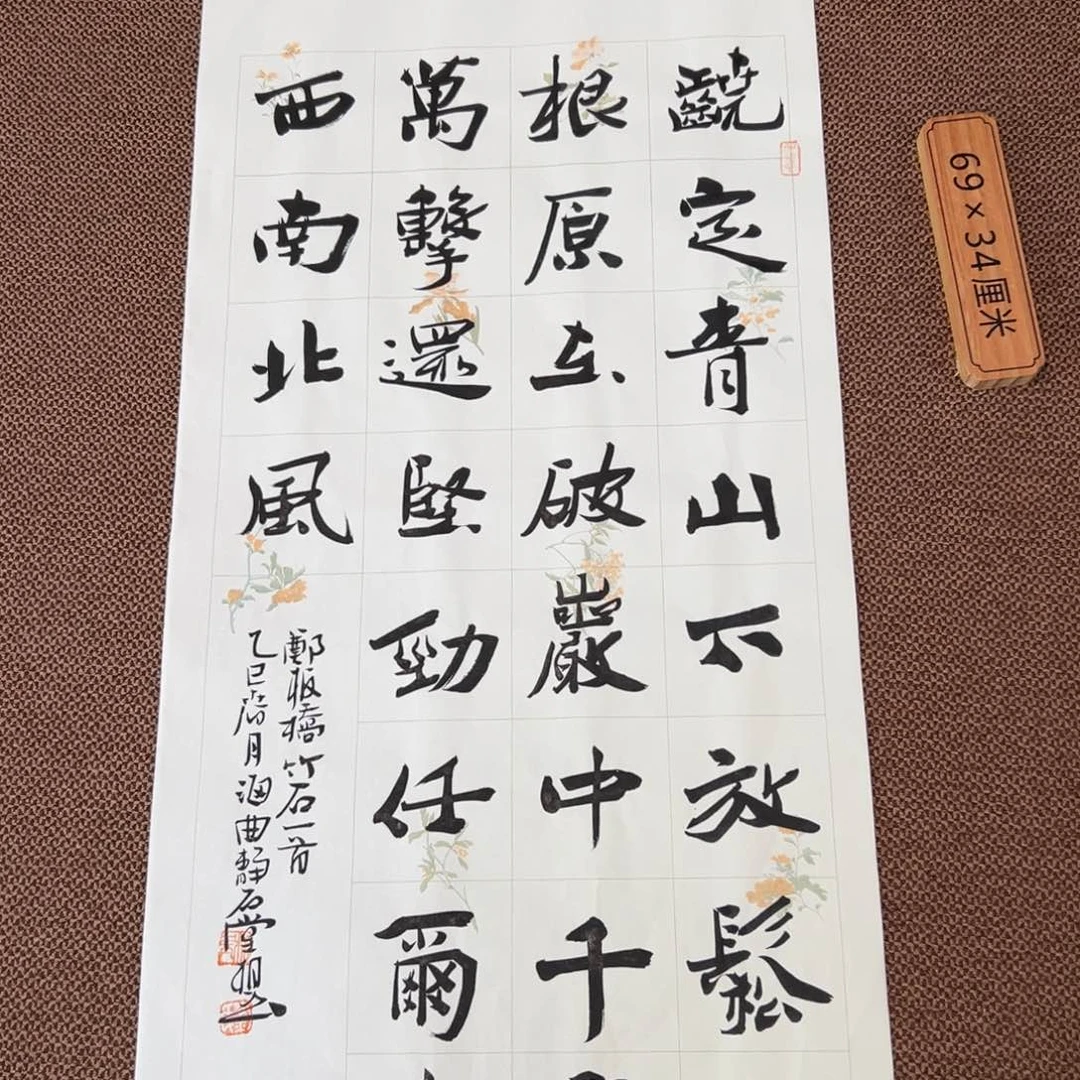 定青山不放鬆
根原在破巖中千
萬擊還堅勁任爾
西南北風
鄭板橋竹石一首
乙巳月海曲靜石堂
69×34厘米